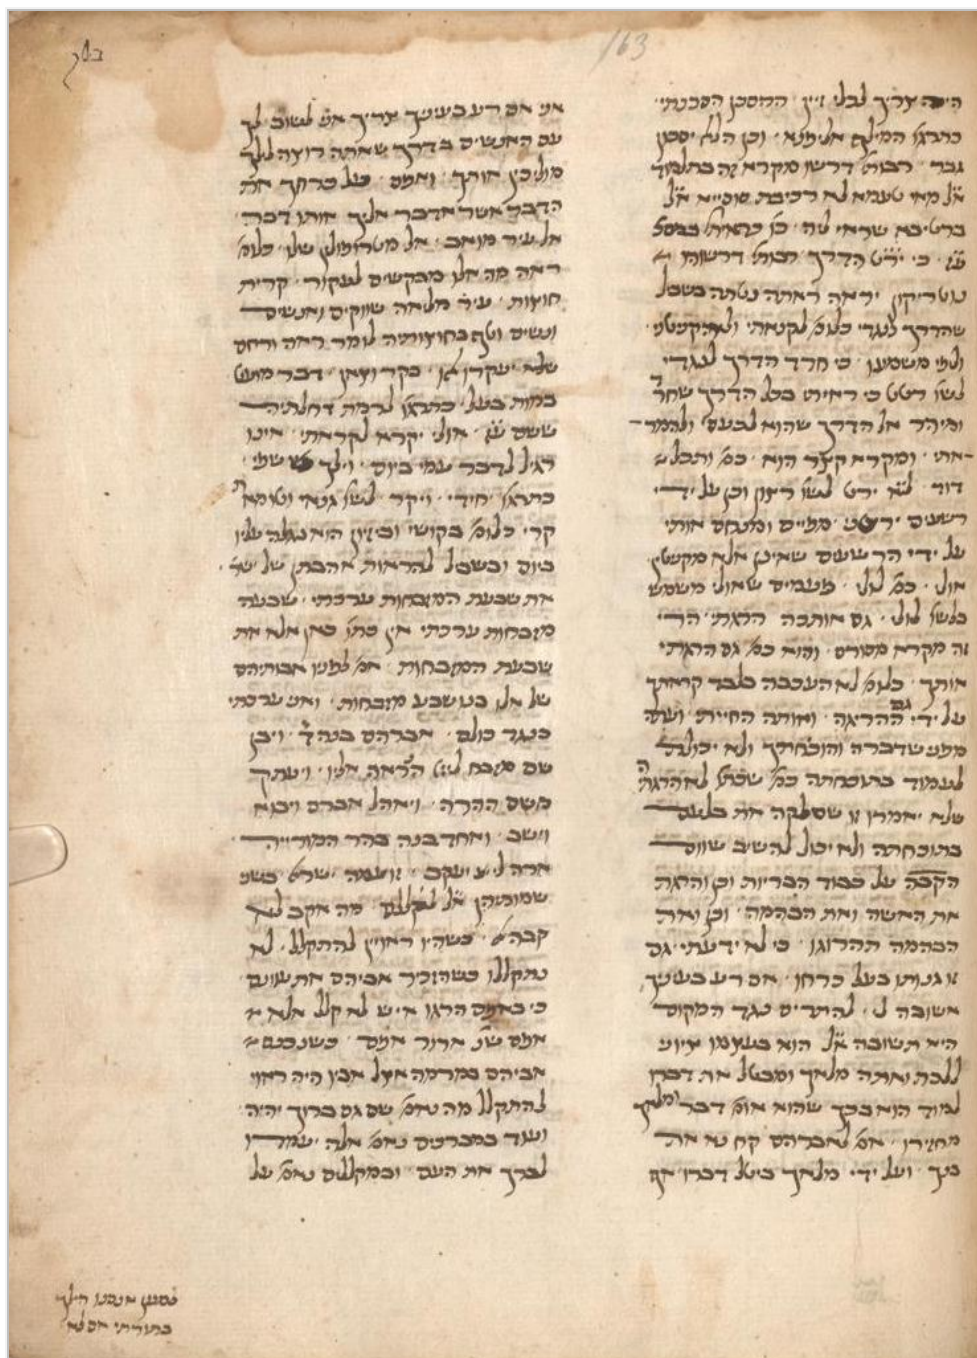 163
בלק
היה צריך לכלי זיין ההסכן הסכנתי
כתרגו המילף אליפנא וכן הלא יסכון
גבר רבותי דרשו מקרא זה בתלמוד
א״ל מאי טעמא לא רכיבת סוסייא א״ל
ברטיבא שדאי ליה כו׳ כדאית׳ במס׳
ע״ז כי ירט הדרך רבות׳ דרשוהו
נוטריקון יראה ראתה נטתה בשביל
שהדרך לנגדי כלומ׳ לקנאתי ולהקניטני
ולפי משמעו כי חרד הדרך לנגדי
לשו׳ רטט כי ראיתי בעל הדרך שחרד
ומיהר אל הדרך שהוא לכעסי ולהמר
אתי ומקרא קצר הוא כמ׳ ותכל
דוד לש׳ ירט לשו׳ רצון וכן על ידי
רשעים ירטני מפייס ומנחם אותי
על ידי הרשעים שאינן אלא מקניטין
אולי כמ׳ לולי פעמים שאולי משמש
בלשו׳ לולי גם אותכה הרגתי הרי
זה מקרא מסורס והוא כמ׳ גם הרגתי
אותך כלומ׳ לא העכבה בלבד קראתך
על ידי גם ההריגה ואותה החייתי ועתה
מפני שדברה והוכיחתך ולא יכולת
לעמוד בתוכחתה כמ׳ שכת׳ לא הרגתיה
שלא יאמרו זו שסלקה את בלעם
בתוכחתה ולא יכול להשיב שחס
הקב״ה על כבוד הבריות וכן והרגת
את האשה ואת הבהמה וכן ואת
הבהמה תהרוגו כי לא ידעתי גם
זו גנותו בעל כרחו אם רע בעיניך
אשובה לי להתריס כנגד המקום
היא תשובה א״ל הוא בעצמו ציוני
ללכת ואתה מלאך ומבטל את דבריו
למוד הוא בכך שהוא אומ׳ דבר ומלאך
מחזירו אמ׳ לאברהם קח נא את
בנך ועל ידי מלאך ביטל דברו אף
אני אם רע בעיניך צריך אני לשוב לך
עם האנשים בדרך שאתה רוצה לילך
מוליכין אותך ואפס על כרחך את
הדבר אשר אדבר אליך אותו דבר
אל עיר מואב אל מטרופולין שלו כלומ׳
ראה מה אלו מבקשים לעקור קרית
חוצות עיר מליאה שווקים ואנשים
ונשים וטף בחוצותיה לומר ראה ורחם
שלא יעקרו אלו בקר וצאן דבר מועט
במות בעל כתרגו׳ לרמת דחלתיה
ששם ע״ז אולי יקרא לקראתי אינו
רגיל לדבר עמי ביום וילך שפי
כתרגו׳ יחידי ויקר לשו׳ גנאי וטומאת
קרי כלומ׳ בקושי ובזיון היה נגלה עליו
ביום ובשביל להראות אהבתן של יש׳
את שבעת המזבחות ערכתי שבעה
מזבחות ערכתי אין כתו׳ כאן אלא את
שבעת המזבחות אמ׳ לפניו אבותיהם
של אלו בנו שבע מזבחות ואני ערכתי
כנגד כולם אברהם בנה ד׳ ויבן
שם מזבח ליי׳ הנראה אליו ויעתק
משם ההרה ויאהל אברם ויבוא
וישב ואחד בנה בהר המורייה
ארה לי יעקב וזועמה ישר׳ בשני
שמותיהן א״ל לקללם מה אקב לא
קבה אל כשהיו ראויין להתקלל לא
נתקללו כשהזכיר אביהם את עונם
כי באפם הרגו איש לא קלל אלא
אפם שנ׳ ארור אפם כשנכנס
אביהם במרמה אצל אביו היה ראוי
להתקלל מה נאמ׳ שם גם ברוך יהיה
ועוד במברכים נאמ׳ אלה יעמדו
לברך את העם ובמקללים נאמ׳ על